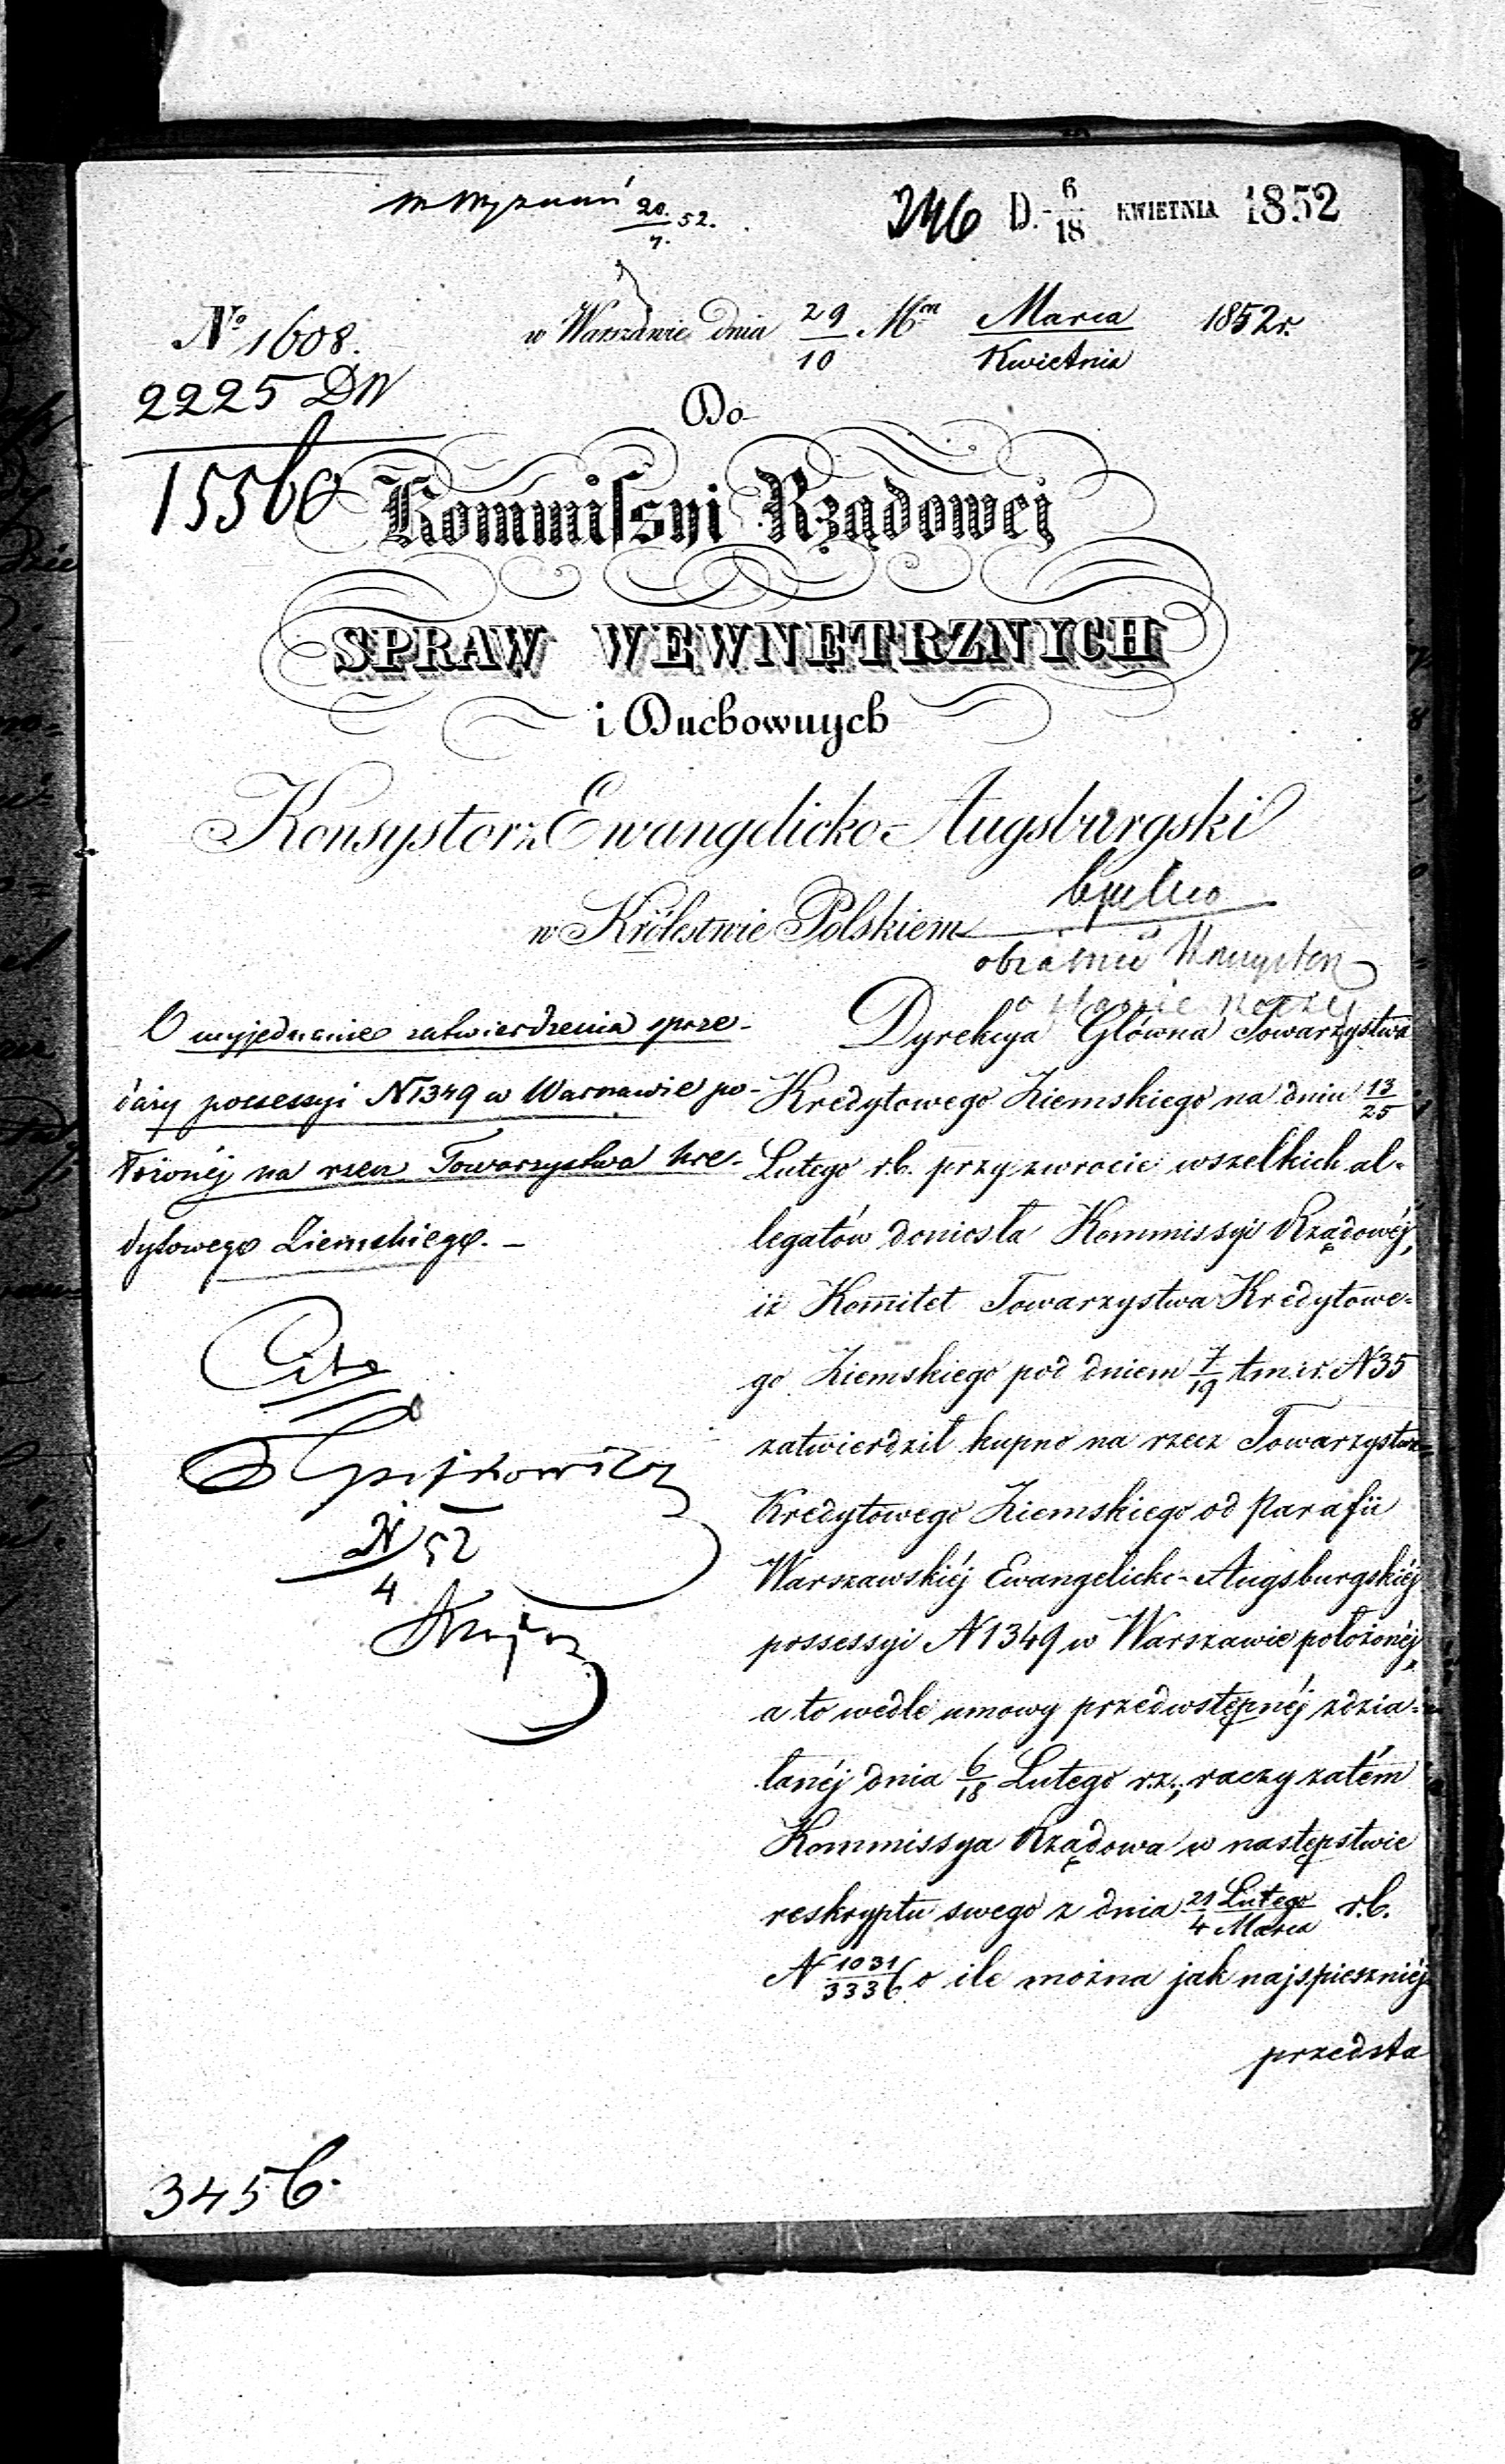 w Wyznań 20./4. 52.
246 D. 6/18 KWIETNIA 1852
w Warszawie dnia 29/10 Mca Marca/Kwietnia 1852 r.
No 1608.
2225 DW
15560
Do
Kommissyi Rządowej
SPRAW WEWNĘTRZNYCH
i Duchownych
Konsystorz Ewangelicko-Augsburgski
w Królestwie Polskiem
O wyjednanie zatwierdzenia sprze-
daży possessyi N 1349 w Warszawie po-
łożonéj na rzecz Towarzystwa Kre-
dytowego Ziemskiego. –
Cito
N/4 52
Dyrekcya Główna Towarzystwa
Kredytowego Ziemskiego na dniu 13/25
Lutego r.b. przy zwrocie wszelkich al-
legatów doniosła Kommissyi Rządowéj,
iż Komitet Towarzystwa Kredytowe-
go Ziemskiego pod dniem 7/19 t.m.i r. N 35
zatwierdził kupno na rzecz Towarzystwa
Kredytowego Ziemskiego od Parafii
Warszawskiéj Ewangelicko-Augsburgskiéj
possessyi N 1349 w Warszawie położonéj,
a to wedle umowy przedwstępnéj zdzia-
łanéj dnia 6/18 Lutego r.z.; raczy zatém
Kommissya Rządowa w następstwie
reskryptu swego z dnia 21 Lutego/4 Marca r.b.
N 1031/3336 o ile można jak najspieszniéj
przedsta
3456.